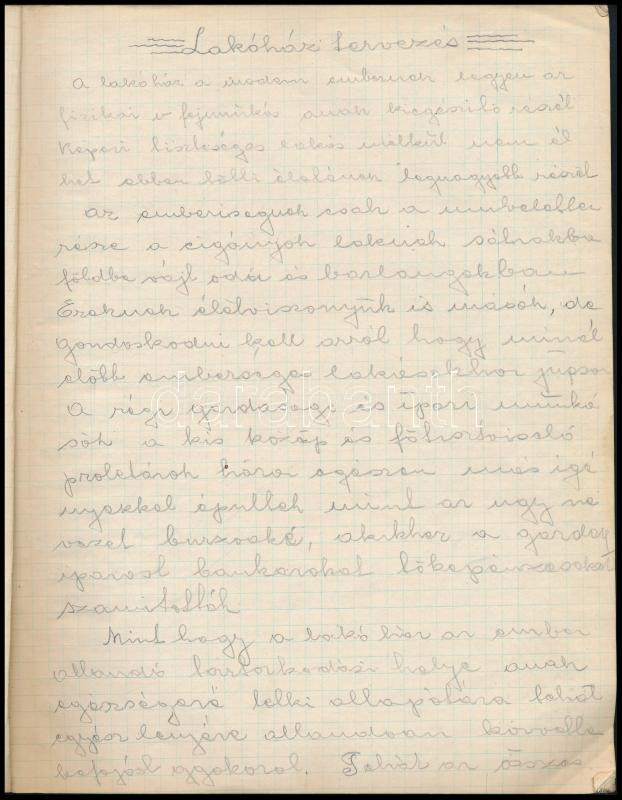 Lakóházi tervezés
A lakóház a modern embernek legyen az
fizikai v fejmunkás annak kiegészitő részét
képezi tisztességes lakás nélkül nem él
het ebben tölti életének legnagyobb részét
az emberiségnek csak a műveletlen
része a cigányok laknak sátrakba
földbe vájt odu és barlangokban
Ezeknek életviszonyuk is mások, de
gondoskodni kell arról hogy minél
előbb emberséges lakásokhoz jusson
A régi gazdasági és ipari munká
sok a kis közép és
proletárok házai egészen más igé
nyekkel épültek mint az ugy ne
vezet burzsoáké, akikhez a gazdag
iparost bankárokat tőkepénzeseket
számitották
Mint hogy a lakó ház az ember
állandó tartózkodási helye annak
egészségére lelki állapotára tehát
egész lényére állandóan
befojást gyakorol. Tehát az összes
darabanth